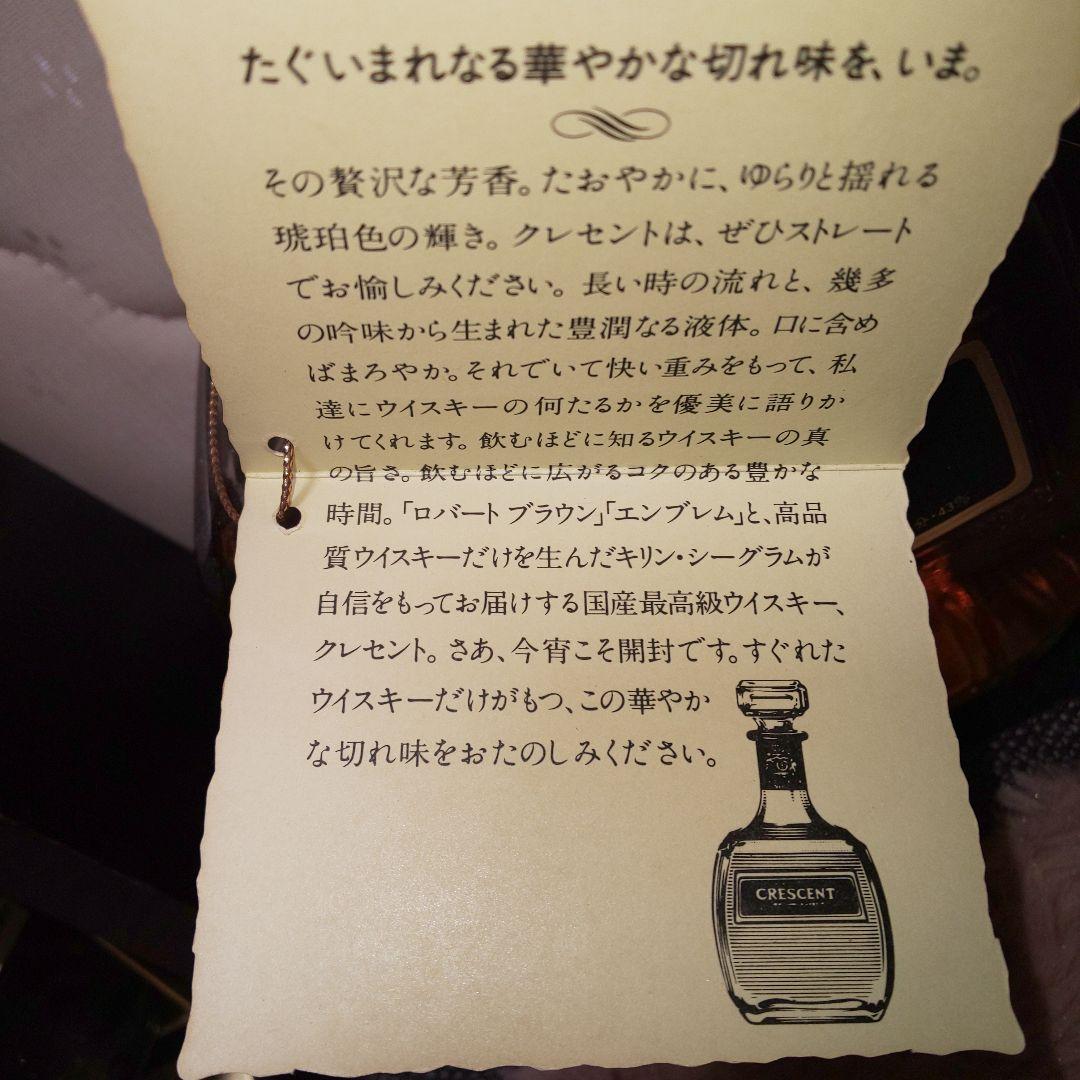 たぐいまれなる華やかな切れ味を、いま。
その贅沢な芳香。たおやかに、ゆらりと揺れる
琥珀色の輝き。クレセントは、ぜひストレート
でお愉しみください。長い時の流れと、幾多
の吟味から生まれた豊潤なる液体。口に含め
ばまろやか。それでいて快い重みをもって、私
達にウイスキーの何たるかを優美に語りか
けてくれます。飲むほどに知るウイスキーの真
の旨さ。飲むほどに広がるコクのある豊かな
時間。「ロバート ブラウン」「エンブレム」と、高品
質ウイスキーだけを生んだキリン・シーグラムが
自信をもってお届けする国産最高級ウイスキー、
クレセント。さあ、今宵こそ開封です。すぐれた
ウイスキーだけがもつ、この華やか
な切れ味をおたのしみください。
CRESCENT
43%